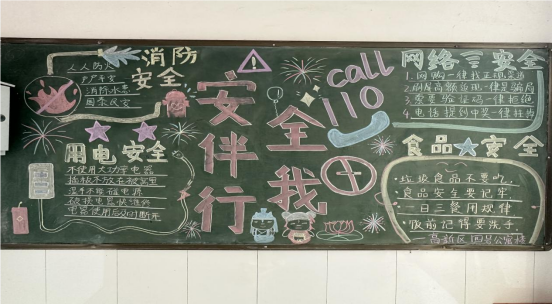 消防
安全
人人防火
户户平安
消防水患
国泰民安
用电安全
不使用大功率电器
插板不放在被窝里
湿手不碰插电源
破损电器快维修
电器使用后及时断开
安伴行
全我
call
110
网络安全
1.网购一律找正规渠道
2.刷信高额返现一律是骗局
3.索要验证码一律拒绝
4.电话提到中奖一律挂掉
食品安全
垃圾食品不要吃,
食品安全要记牢
一日三餐用规律
饭前记得要洗手.